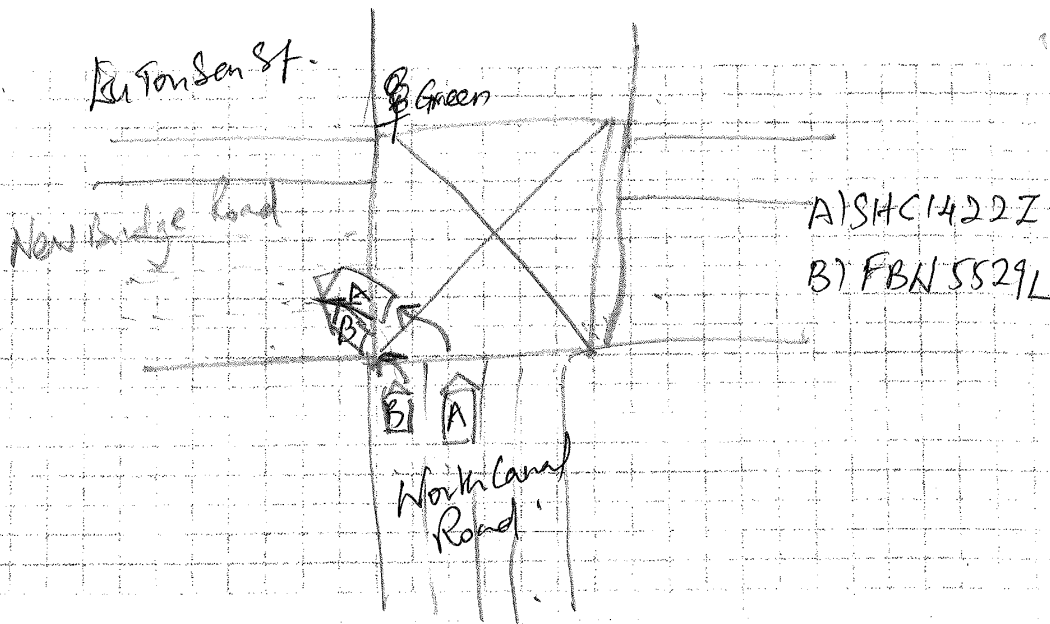 Eu Tong Sen St.
Green
New Bridge Road
A) SHC1422Z
B) FBN 5529L
A
B
B
A
North Canal
Road